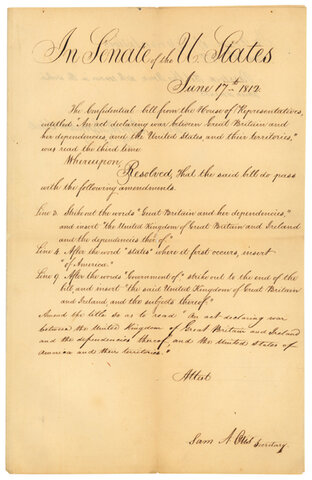 In Senate of the U. States
June 17th. 1812.
The Confidential bill from the House of Representatives,
intitled "An act declaring war between Great Britain and
her dependencies, and the United States and their territories,"
was read the third time
Whereupon,
Resolved, That the said bill do pass
with the following amendments.
Line 3. Strike out the words "Great Britain and her dependencies,"
and insert "the United Kingdom of Great Britain and Ireland
and the dependencies thereof"
Line 5. After the word "States" where it first occurs, insert
"of America"
Line 9. After the words "Government of" strike out to the end of the
bill, and insert "the said United Kingdom of Great Britain
and Ireland, and the subjects thereof."
Amend the title so as to read "An act declaring war
between the United Kingdom of Great Britain and Ireland
and the dependencies thereof, and the United States of
America and their territories."
Attest
Sam A Otis Secretary.